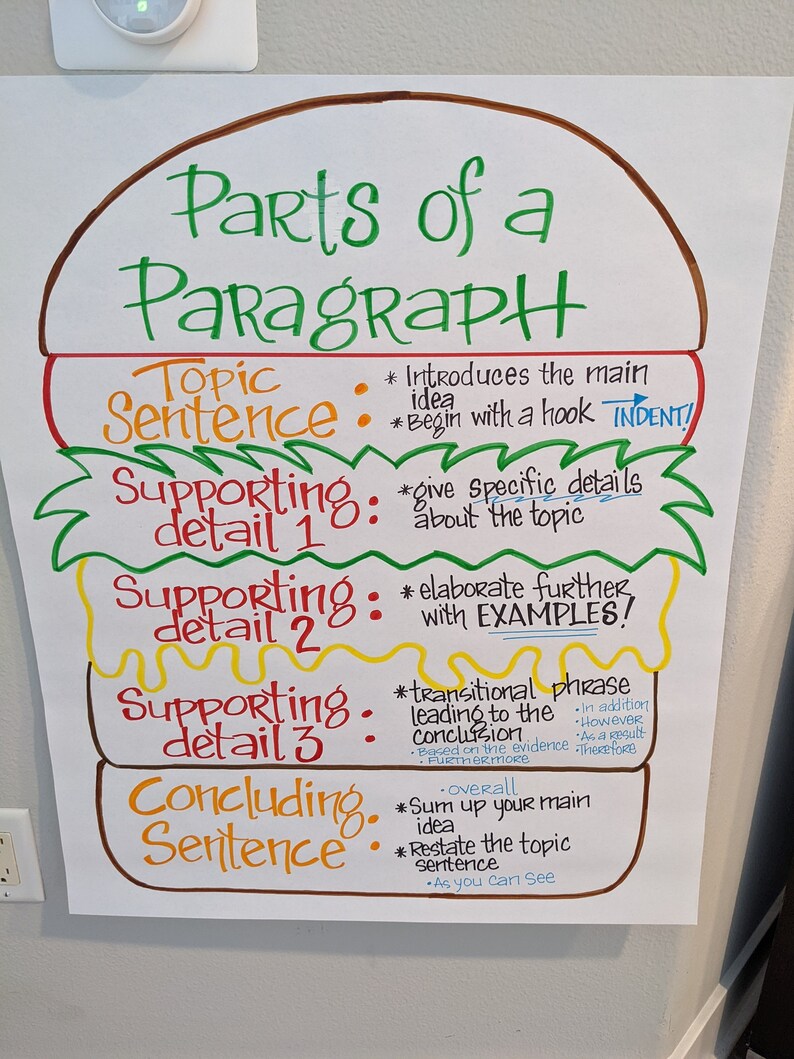 Parts of a
Paragraph
Topic
Sentence:
* Introduces the main
idea
* Begin with a hook → INDENT!
Supporting
detail 1:
* give specific details
about the topic
Supporting
detail 2:
* elaborate further
with EXAMPLES!
Supporting
detail 3:
* transitional phrase
leading to the
conclusion
• Based on the evidence
• Furthermore
• In addition
• However
• As a result
• Therefore
Concluding
Sentence:
• overall
* Sum up your main
idea
* Restate the topic
sentence
• As you can see